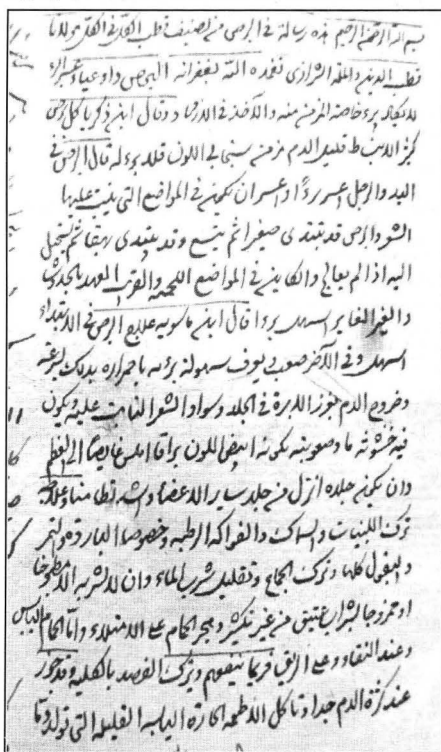 بسم الله الرحمن الرحيم هذه رسالة في البرص من تصنيف قطب الكل في الكل مولانا
قطب الدين والملة الشرازى تغمده الله بغفرانه البرص داء عياء عسر البرء
لا يكاد يبرء خاصة المزمن منه والآخذ في الازدياد وقال ابن زكريا كل برص
كثر قليل الدم مزمن في اللون فلا برء له قال البرص في
اليد والرجل اعسر برءًا واعسر ان يكون في المواضع التى ينبت عليها
الشعر والبرص قد يبتدى صغيرا ثم يتسع وقد يبتدى بهقا ثم يستحيل
اليه اذا لم يعالج والكاين في المواضع اللحمية والقريب العهد بالحدوث
والغير الغاير اسهل برءا قال ابن ماسويه علاج البرص في الابتداء
اسهل وفي الآخر صعب ويعرف سهولة برئه باحمراره بدلك بسرعة
وخروج الدم بغرز الابرة في الجلد وسواد الشعر النابت عليه ويكون
فيه خشونة ما وصعوبته بكونه ابيض اللون براقا املس غايصا الى العظم
وان يكون جلده انزل من جلد ساير الاعضاء واشد تطامنا وعلاجه
ترك اللبنيات والسمك والفواكه الرطبة وخصوصا الباردة والتمر
والبقول كلها وترك الجماع وتقليل شرب الماء وان لا يشربه الا
او ممزوجا بشراب عتيق من غير تكثير وهجر الحمام على الامتلاء واما الحمام اليابس
وعند النقاء وعلى الريق فربما ينفعهم ويترك الفصد بالكلية وقد جوز
عند كثرة الدم جدا وتاكل الاطعمة الحارة اليابسة القليلة التى تولد دما